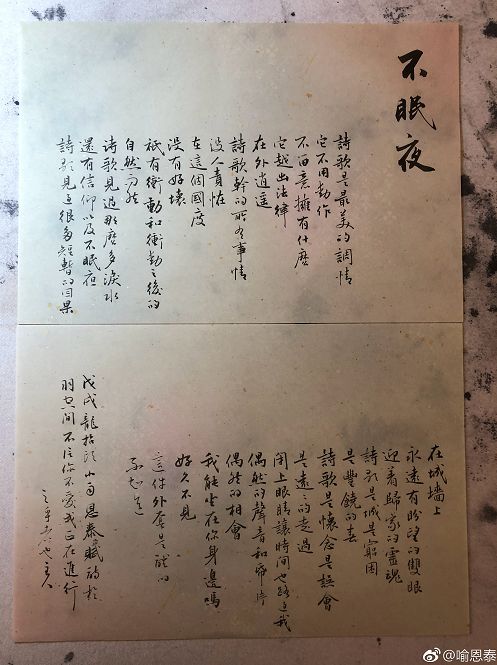 不眠夜
詩歌是最美的調情
它不用動作
不意擁有什麽
它越出法律
在外逍遥
詩歌幹的所有事情
没人責怪
在這個國度
没有好壞
祇有衝動和衝動之後的
自然而然
诗歌見過那麽多淚水
還有信仰以及不眠夜
詩歌見過很多短暫的因果
在城墙上
永遠有盼望的雙眼
迎着歸家的靈魂
詩歌是城是窮困
是豐饒的春
詩歌是懷念是誤會
是遠〻的走過
閉上眼睛讓時間也路過我
偶然的聲音和片
偶然的相會
我能坐在你身邊嗎
好久不見
這件外套是誰的
不知道
戊戌龍抬頭小雨恩泰賦於
羽空間不信你不愛我正在進行
@喻恩泰